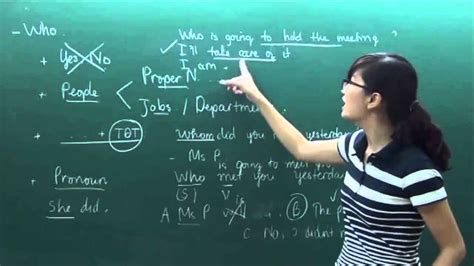 - Who.
+ Yes No
+ People
Proper N.
Jobs / Departmen
+ ... + TĐT
+ Pronoun
She did.
Who is going to hold the meeting ?
I'll take care of it
I am
Whom did you yesterday
- Ms P
is going to meet you
Who met you yesterday
(S) V
A Ms P
B The p
C No, I didn't